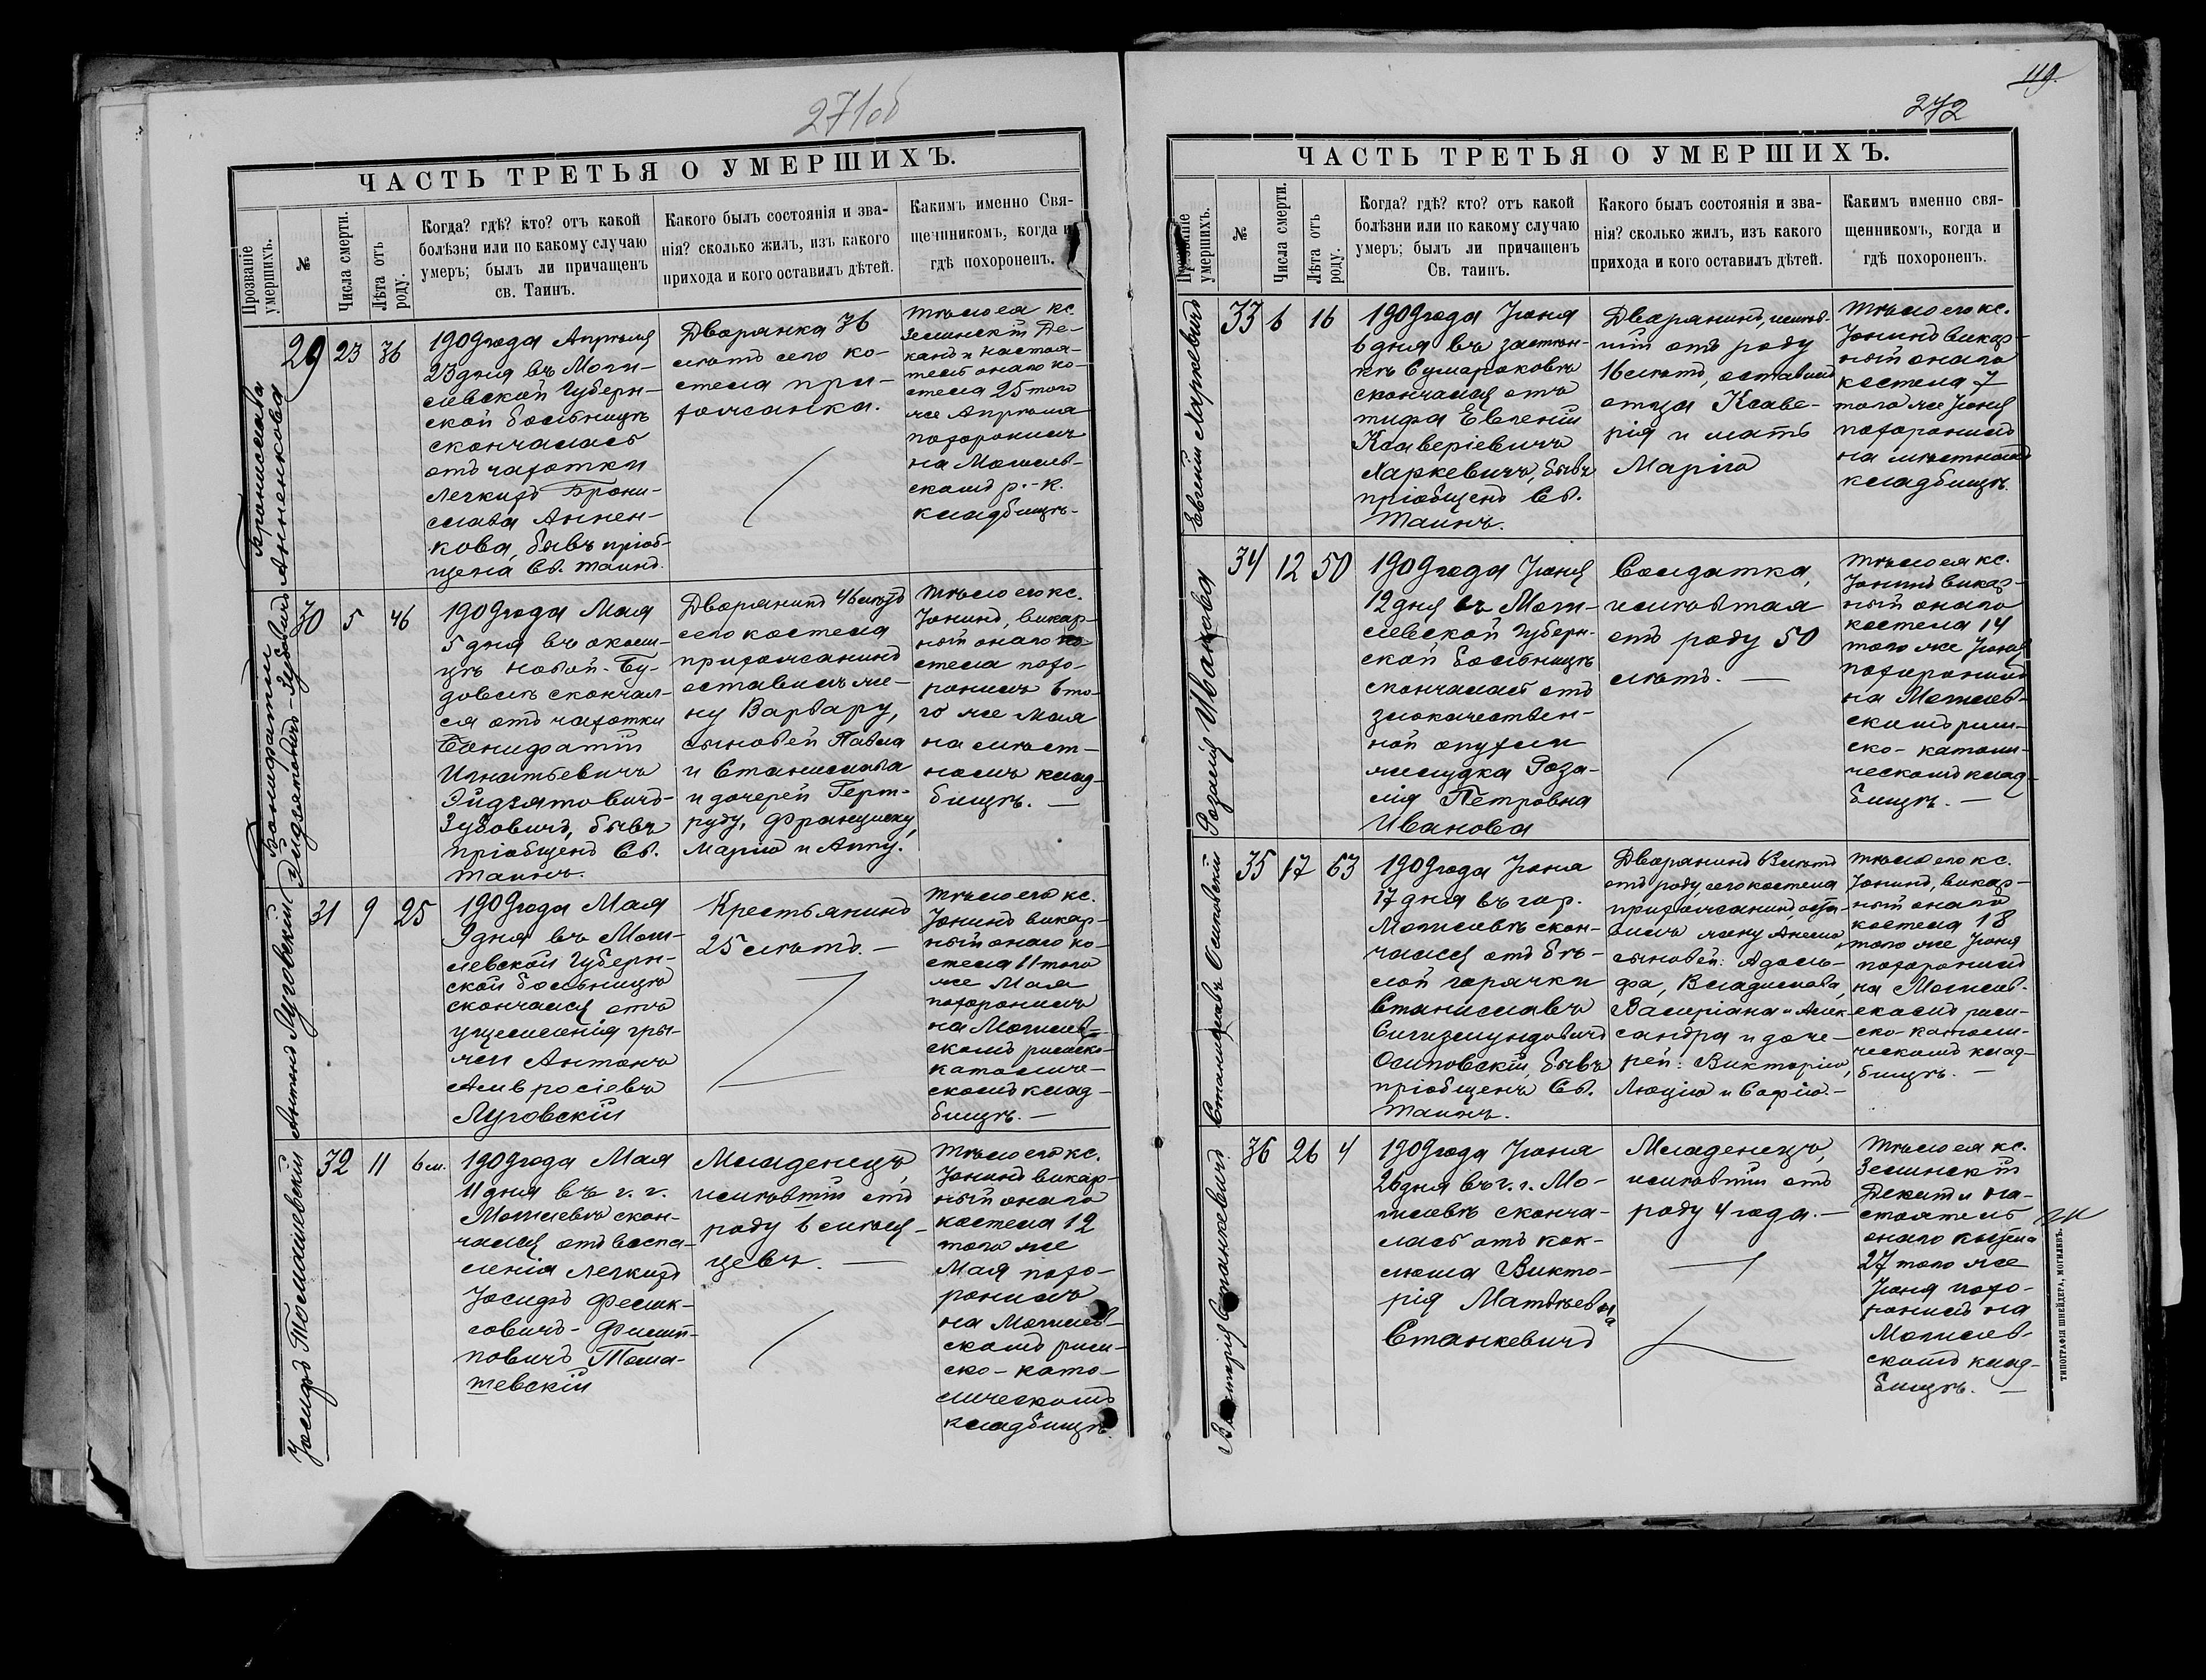 271об
ЧАСТЬ ТРЕТЬЯ О УМЕРШИХЪ.
Прозваніе умершихъ.
№
Числа смерти.
Лѣта отъ роду.
Когда? гдѣ? кто? отъ какой
болѣзни или по какому случаю
умеръ; былъ ли причащенъ
св. Таинъ.
Какого былъ состоянія и зва-
нія? сколько жилъ, изъ какого
прихода и кого оставилъ дѣтей.
Какимъ именно Свя-
щенникомъ, когда и
гдѣ похороненъ.
Бронислава
Анненкова
29
23
36
1909 года Апрѣля
23 дня въ Моги-
левской Губерн-
ской больницѣ
скончалась
отъ чахотки
легкихъ Брони-
слава Аннен-
кова, бывъ пріоб-
щена Св. Таинъ.
Дворянка 36
лѣтъ сего ко-
стела при-
хожанка.
Тѣло ея кс.
Зелинскій Де-
канъ и настоя-
тель онаго ко-
стела 25 того
же Апрѣля
похоронилъ
на Могилев-
скомъ р.-к.
кладбищѣ.
Бонифатій
Эйдзятовичъ-Зубовичъ
30
5
46
1909 года Мая
5 дня въ околи-
цѣ новой-Бу-
довлѣ скончал-
ся отъ чахотки
Бонифатій
Игнатьевичъ
Эйдзятовичъ-
Зубовичъ, бывъ
пріобщенъ Св.
Таинъ.
Дворянинъ 46 лѣтъ
сего костела
прихожанинъ
оставилъ же-
ну Варвару,
сыновей Павла
и Станислава
и дочерей Герт-
руду, Франциску,
Марію и Анну.
Тѣло его кс.
Іонинъ, викар-
ный онаго ко-
стела похо-
ронилъ 6 то-
го же Мая
на мѣст-
номъ клад-
бищѣ. —
Антонъ Луговскій
31
9
25
1909 года Мая
9 дня въ Моги-
левской Губерн-
ской больницѣ
скончался отъ
ущемленія гры-
жи Антонъ
Амвросіевъ
Луговскій
Крестьянинъ
25 лѣтъ. —
Тѣло его кс.
Іонинъ викар-
ный онаго ко-
стела 11 того
же Мая
похоронилъ
на Могилев-
скомъ римско-
католиче-
скомъ клад-
бищѣ. —
Іосифъ Томашевскій
32
11
6 м.
1909 года Мая
11 дня въ г. г.
Могилевѣ скон-
чался отъ воспа-
ленія легкихъ
Іосифъ Феликс-
овичъ-Филип-
повичъ Тома-
шевскій
Младенецъ,
жившій отъ
роду 6 мѣся-
цевъ. —
Тѣло его кс.
Іонинъ викар-
ный онаго
костела 12
того же
Мая похо-
ронилъ
на Могилев-
скомъ рим-
ско-като-
лическомъ
кладбищѣ.
119.
272
ЧАСТЬ ТРЕТЬЯ О УМЕРШИХЪ.
Прозваніе умершихъ.
№
Числа смерти.
Лѣта отъ роду.
Когда? гдѣ? кто? отъ какой
болѣзни или по какому случаю
умеръ; былъ ли причащенъ
Св. таинъ.
Какого былъ состоянія и зва-
нія? сколько жилъ, изъ какого
прихода и кого оставилъ дѣтей.
Какимъ именно свя-
щенникомъ, когда и
гдѣ похороненъ.
Евгеній Харкевичъ
33
6
16
1909 года Іюня
6 дня въ застѣн-
кѣ Сумароковѣ
скончался отъ
тифа Евгеній
Ксаверіевичъ
Харкевичъ, бывъ
пріобщенъ Св.
Таинъ.
Дворянинъ, жив-
шій отъ роду
16 лѣтъ, оставилъ
отца Ксаве-
рія и мать
Марію
Тѣло его кс.
Іонинъ викар-
ный онаго
костела 7
того же Іюня
похоронилъ
на мѣстномъ
кладбищѣ.
Розалія Иванова
34
12
50
1909 года Іюня
12 дня въ Моги-
левской Губерн-
ской больницѣ
скончалась отъ
злокачествен-
ной опухоли
желудка Роза-
лія Петровна
Иванова
Солдатка,
жившая
отъ роду 50
лѣтъ. —
Тѣло ея кс.
Іонинъ викар-
ный онаго
костела 14
того же Іюня
похоронилъ
на Могилев-
скомъ рим-
ско-католи-
ческомъ клад-
бищѣ. —
Станиславъ Осиповскій
35
17
63
1909 года Іюня
17 дня въ гор.
Могилевѣ скон-
чался отъ бѣ-
лой горячки
Станиславъ
Сигизмундовичъ
Осиповскій, бывъ
пріобщенъ Св.
Таинъ.
Дворянинъ 63 лѣтъ
отъ роду, сего костела
прихожанинъ, оста-
вилъ жену Анелю,
сыновей: Адоль-
фа, Владислава,
Валеріана и Алек-
сандра и доче-
рей: Викторію,
Люцію и Софію. —
Тѣло его кс.
Іонинъ, викар-
ный онаго
костела 18
того же Іюня
похоронилъ
на Могилев-
скомъ рим-
ско-католи-
ческомъ клад-
бищѣ. —
Викторія Станкевичъ
36
26
4
1909 года Іюня
26 дня въ г. г. Мо-
гилевѣ сконча-
лась отъ кок-
люша Викто-
рія Матѳѣевна
Станкевичъ
Младенецъ,
жившій отъ
роду 4 года. —
Тѣло ея кс.
Зелинскій
Деканъ и на-
стоятель
онаго костела
27 того же
Іюня похо-
ронилъ на
Могилев-
скомъ клад-
бищѣ. —
ТИПОГРАФІЯ ШНЕЙДЕРА, МОГИЛЕВЪ.